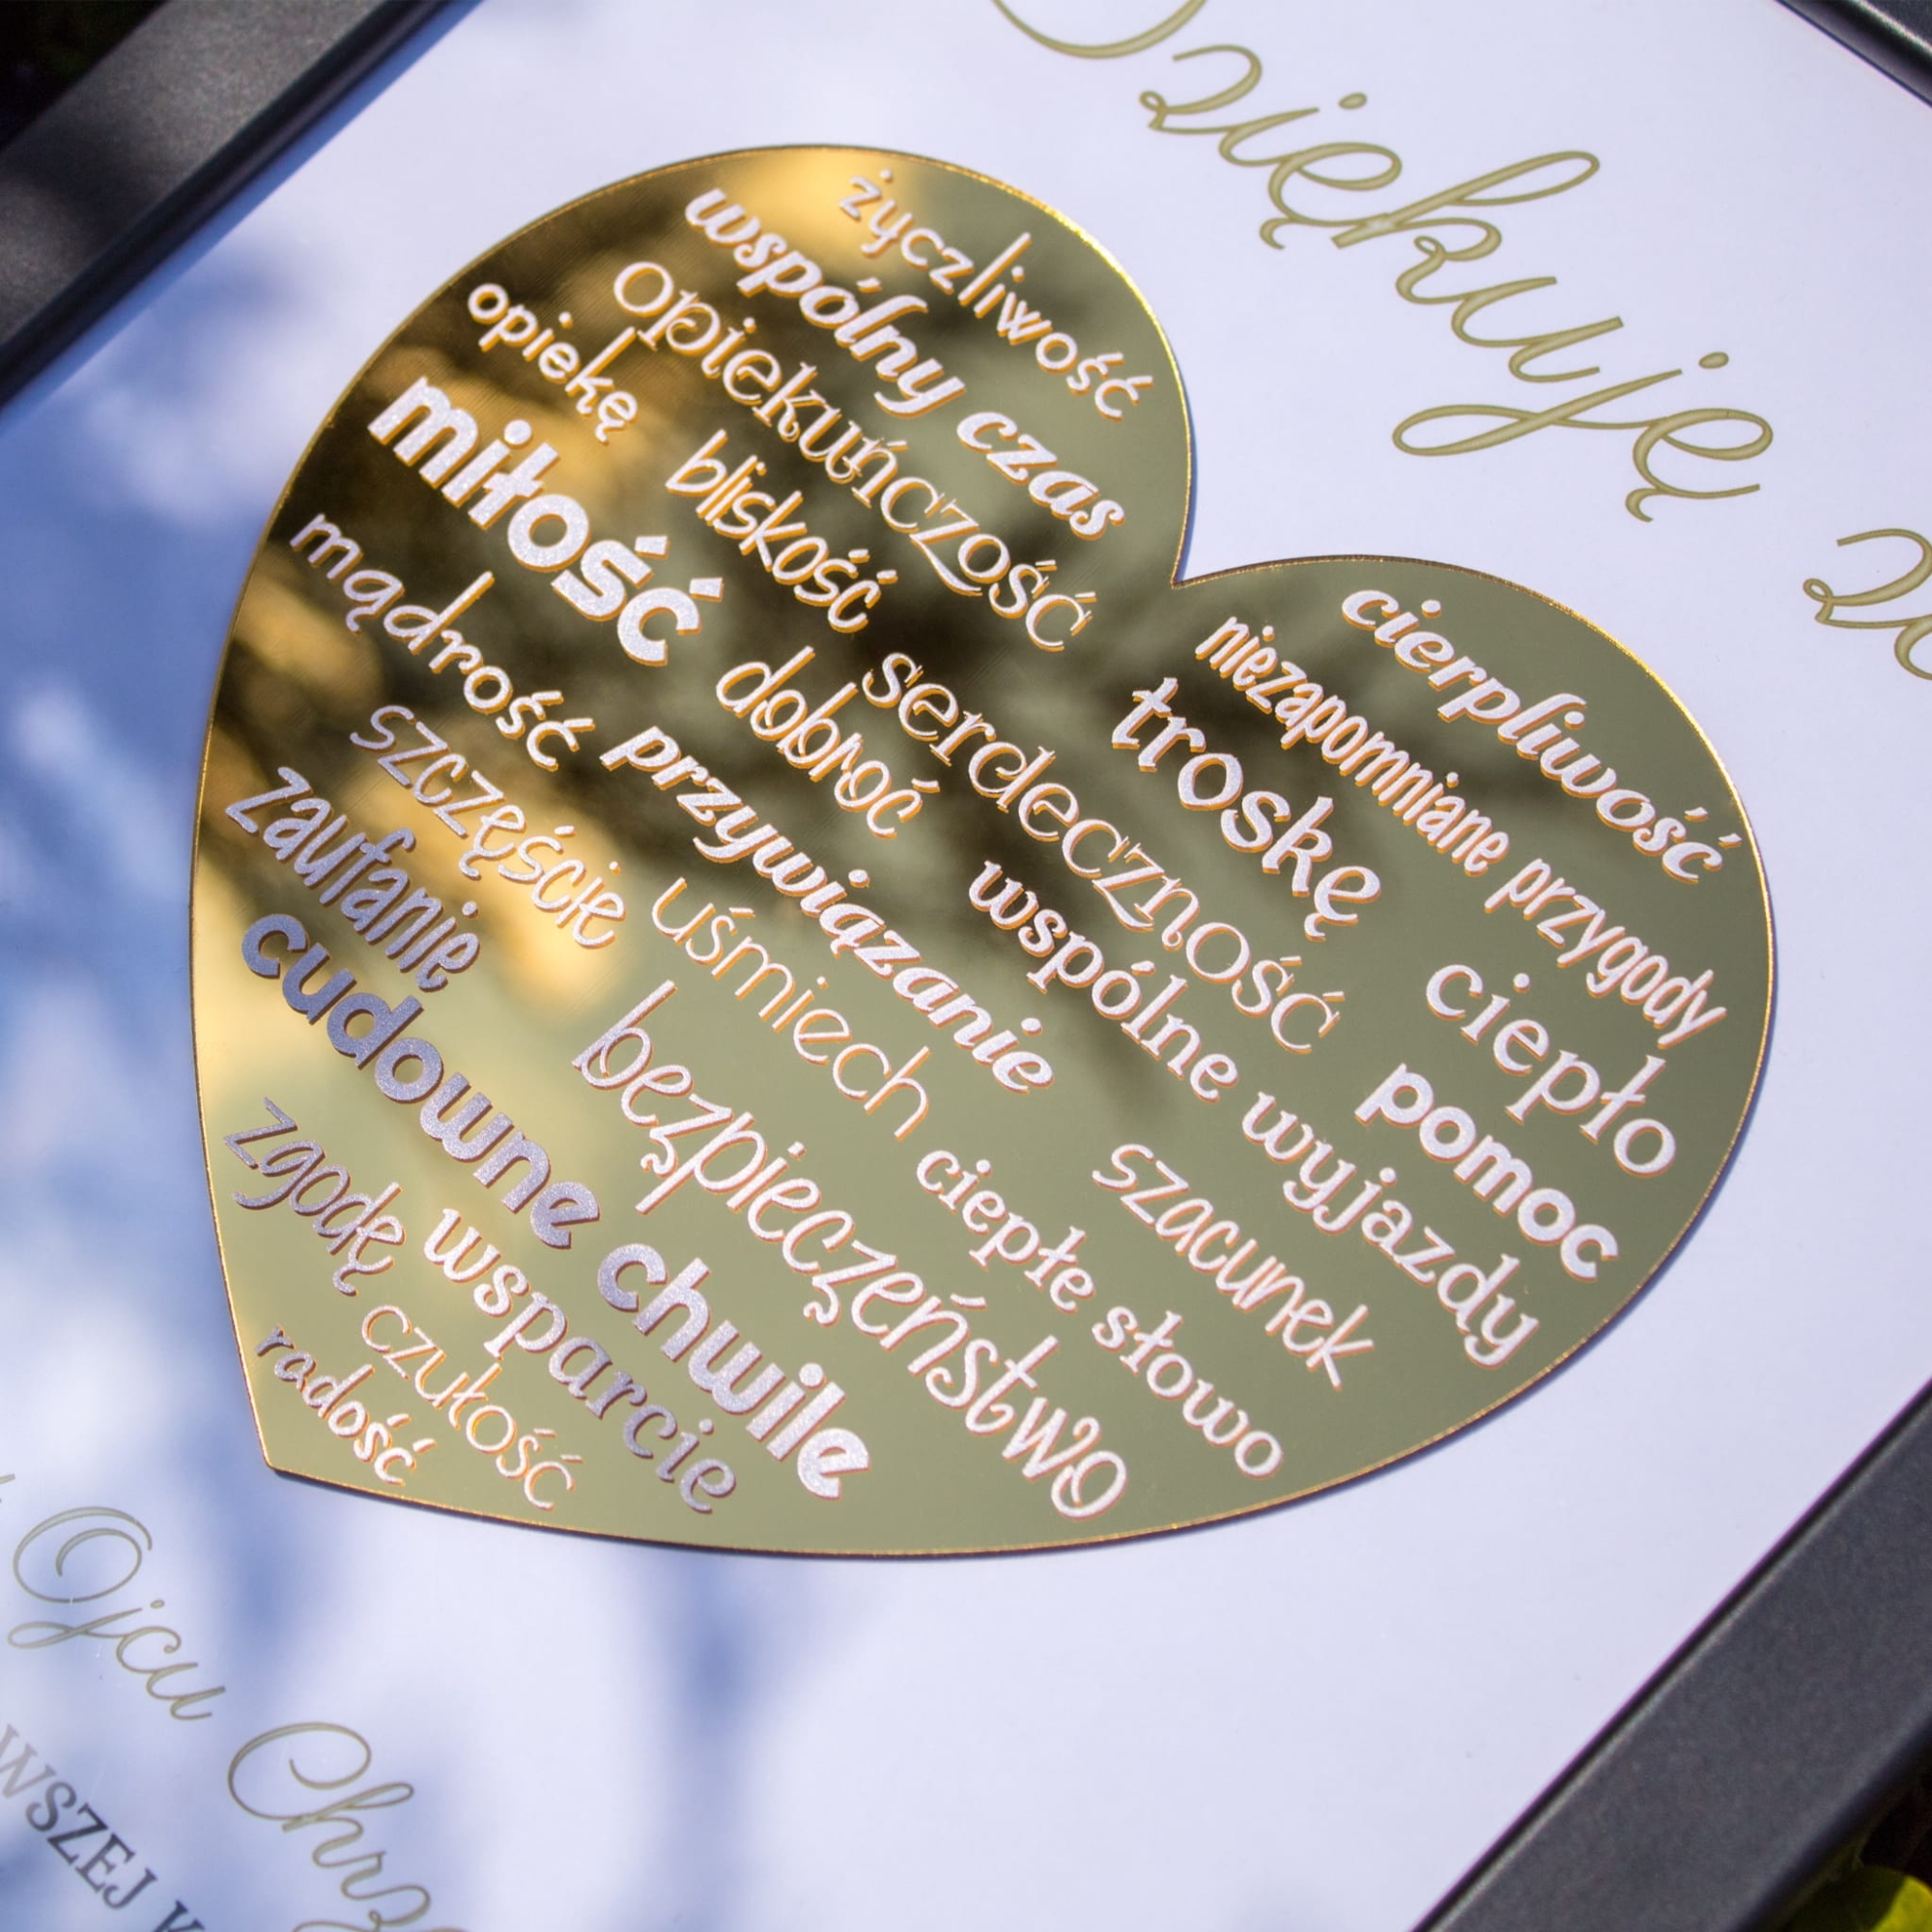 Dziękuję za
życzliwość
wspólny czas
opiekuńczość
opiekę
bliskość
miłość
cierpliwość
niezapomniane przygody
troskę
serdeczność
dobroć
mądrość
ciepło
pomoc
wspólne wyjazdy
przywiązanie
szczęście
zaufanie
szacunek
ciepłe słowo
uśmiech
bezpieczeństwo
cudowne chwile
zgodę
wsparcie
czułość
radość
Ojcu